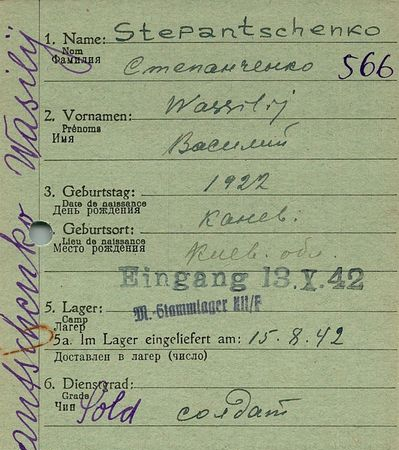 1. Name: Stepantschenko
Nom
Фамилия Степанченко 566
2. Vornamen: Wassilij
Prénoms
Имя Василий
3. Geburtstag: 1922
Date de naissance
День рождения Канев.
Geburtsort:
Lieu de naissance
Место рождения Киев. обл
Eingang 13. X. 42
5. Lager: M.-Stammlager
Camp
Лагерь
5a. Im Lager eingeliefert am: 15.8.42
Доставлен в лагерь (число)
6. Dienstgrad:
Grade
Чин Sold солдат
antschenko Wasilij